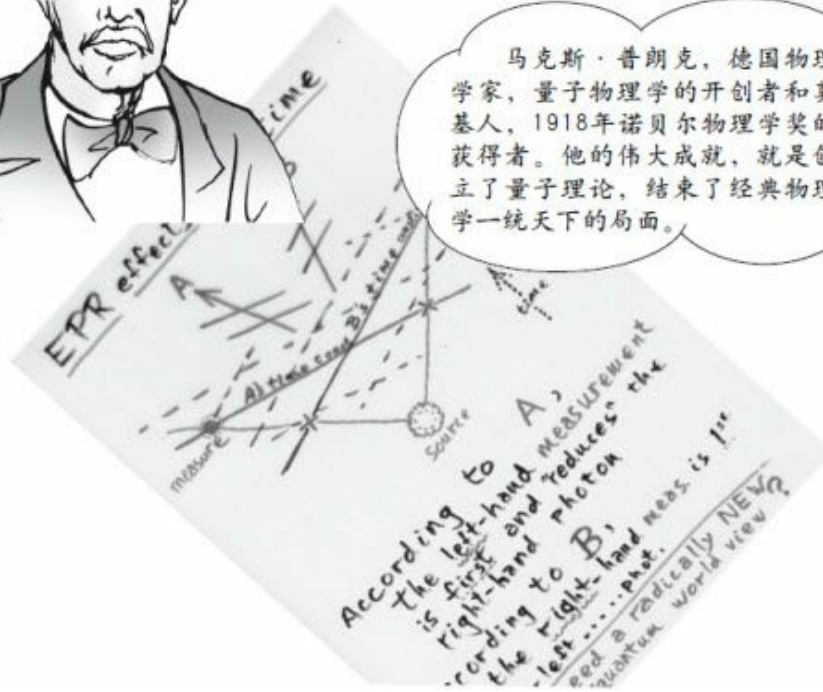 马克斯·普朗克，德国物理
学家，量子物理学的开创者和奠
基人，1918年诺贝尔物理学奖的
获得者。他的伟大成就，就是创
立了量子理论，结束了经典物理
学一统天下的局面。
EPR effect
time
A
A's time
B's time
time
measure
source
According to A,
the left-hand measurement
is first and "reduces" the
right-hand photon
cording to B,
the right-hand meas. is 1st.
left .....phot.
eed a radically NEW
quantum world view?